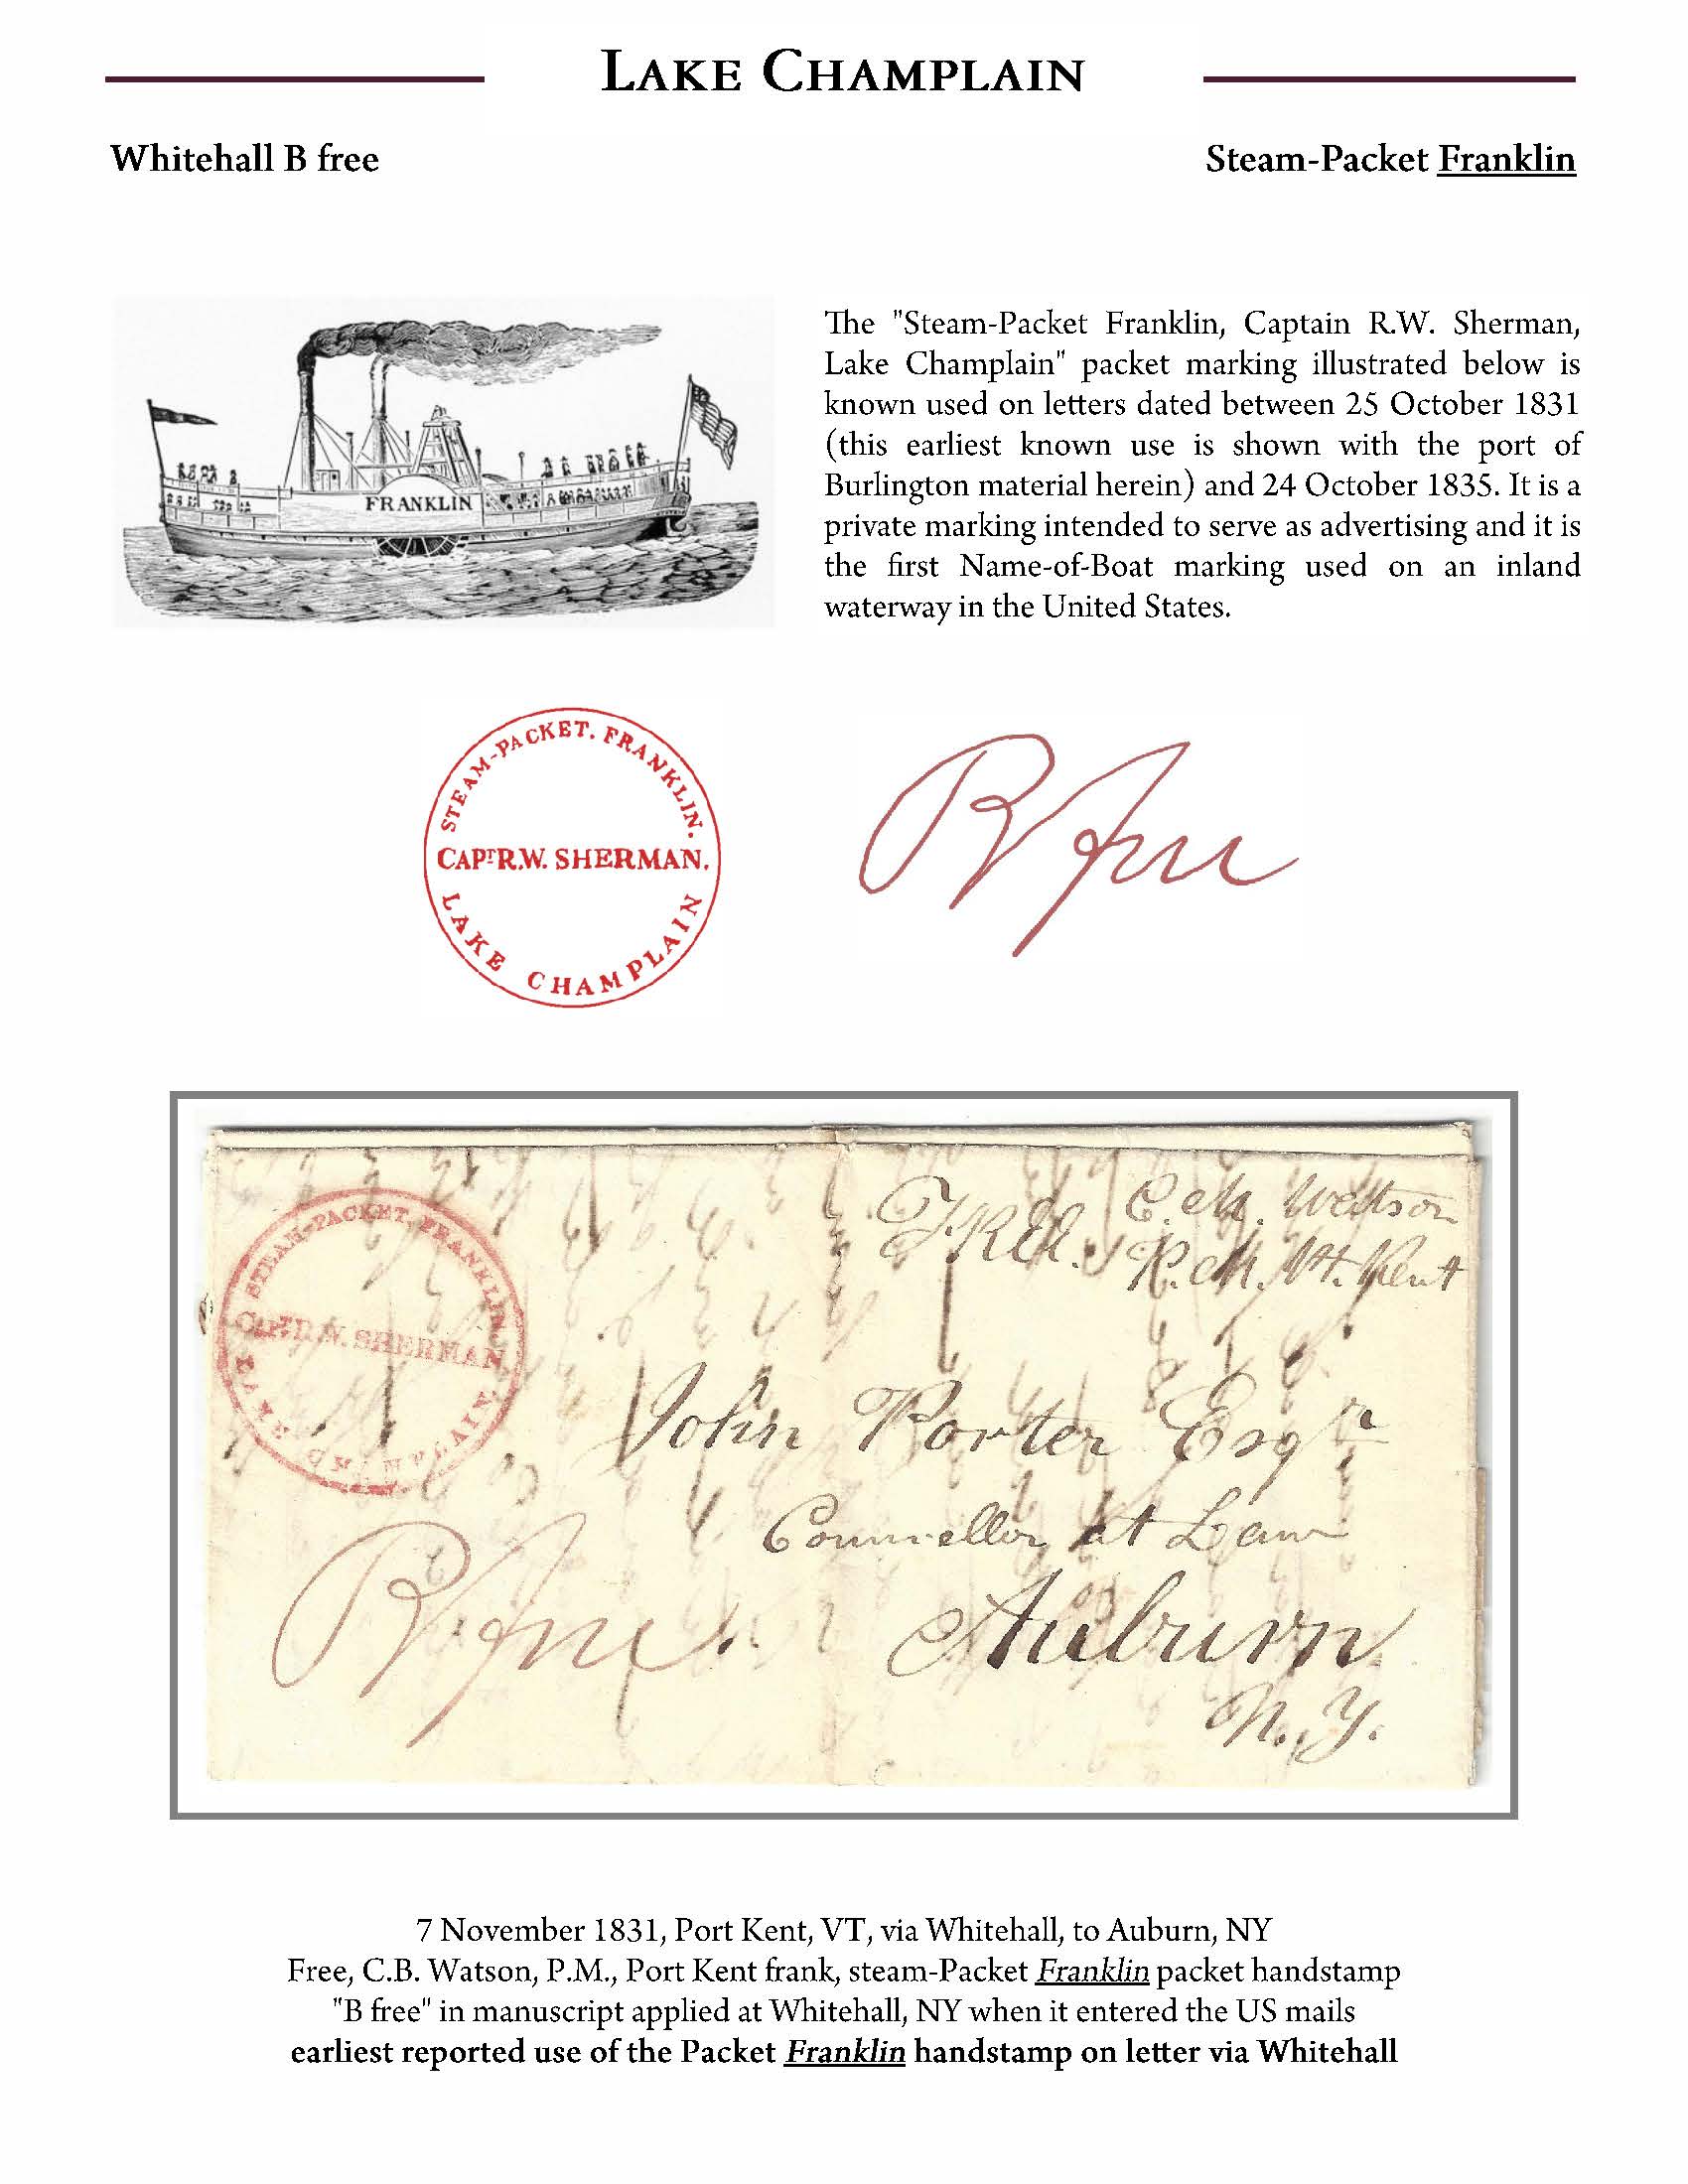 LAKE CHAMPLAIN
Whitehall B free
Steam-Packet Franklin
The "Steam-Packet Franklin, Captain R.W. Sherman,
Lake Champlain" packet marking illustrated below is
known used on letters dated between 25 October 1831
(this earliest known use is shown with the port of
Burlington material herein) and 24 October 1835. It is a
private marking intended to serve as advertising and it is
the first Name-of-Boat marking used on an inland
waterway in the United States.
FRANKLIN
STEAM-PACKET. FRANKLIN.
CAPT R.W. SHERMAN.
LAKE CHAMPLAIN
B free
STEAM-PACKET, FRANKLIN.
CAPT R.W. SHERMAN
LAKE CHAMPLAIN
FREE.
P.M. Pt. Kent
John Porter Esqr
Councellor at Law
Auburn
N.Y.
B free
7 November 1831, Port Kent, VT, via Whitehall, to Auburn, NY
Free, C.B. Watson, P.M., Port Kent frank, steam-Packet Franklin packet handstamp
"B free" in manuscript applied at Whitehall, NY when it entered the US mails
earliest reported use of the Packet Franklin handstamp on letter via Whitehall